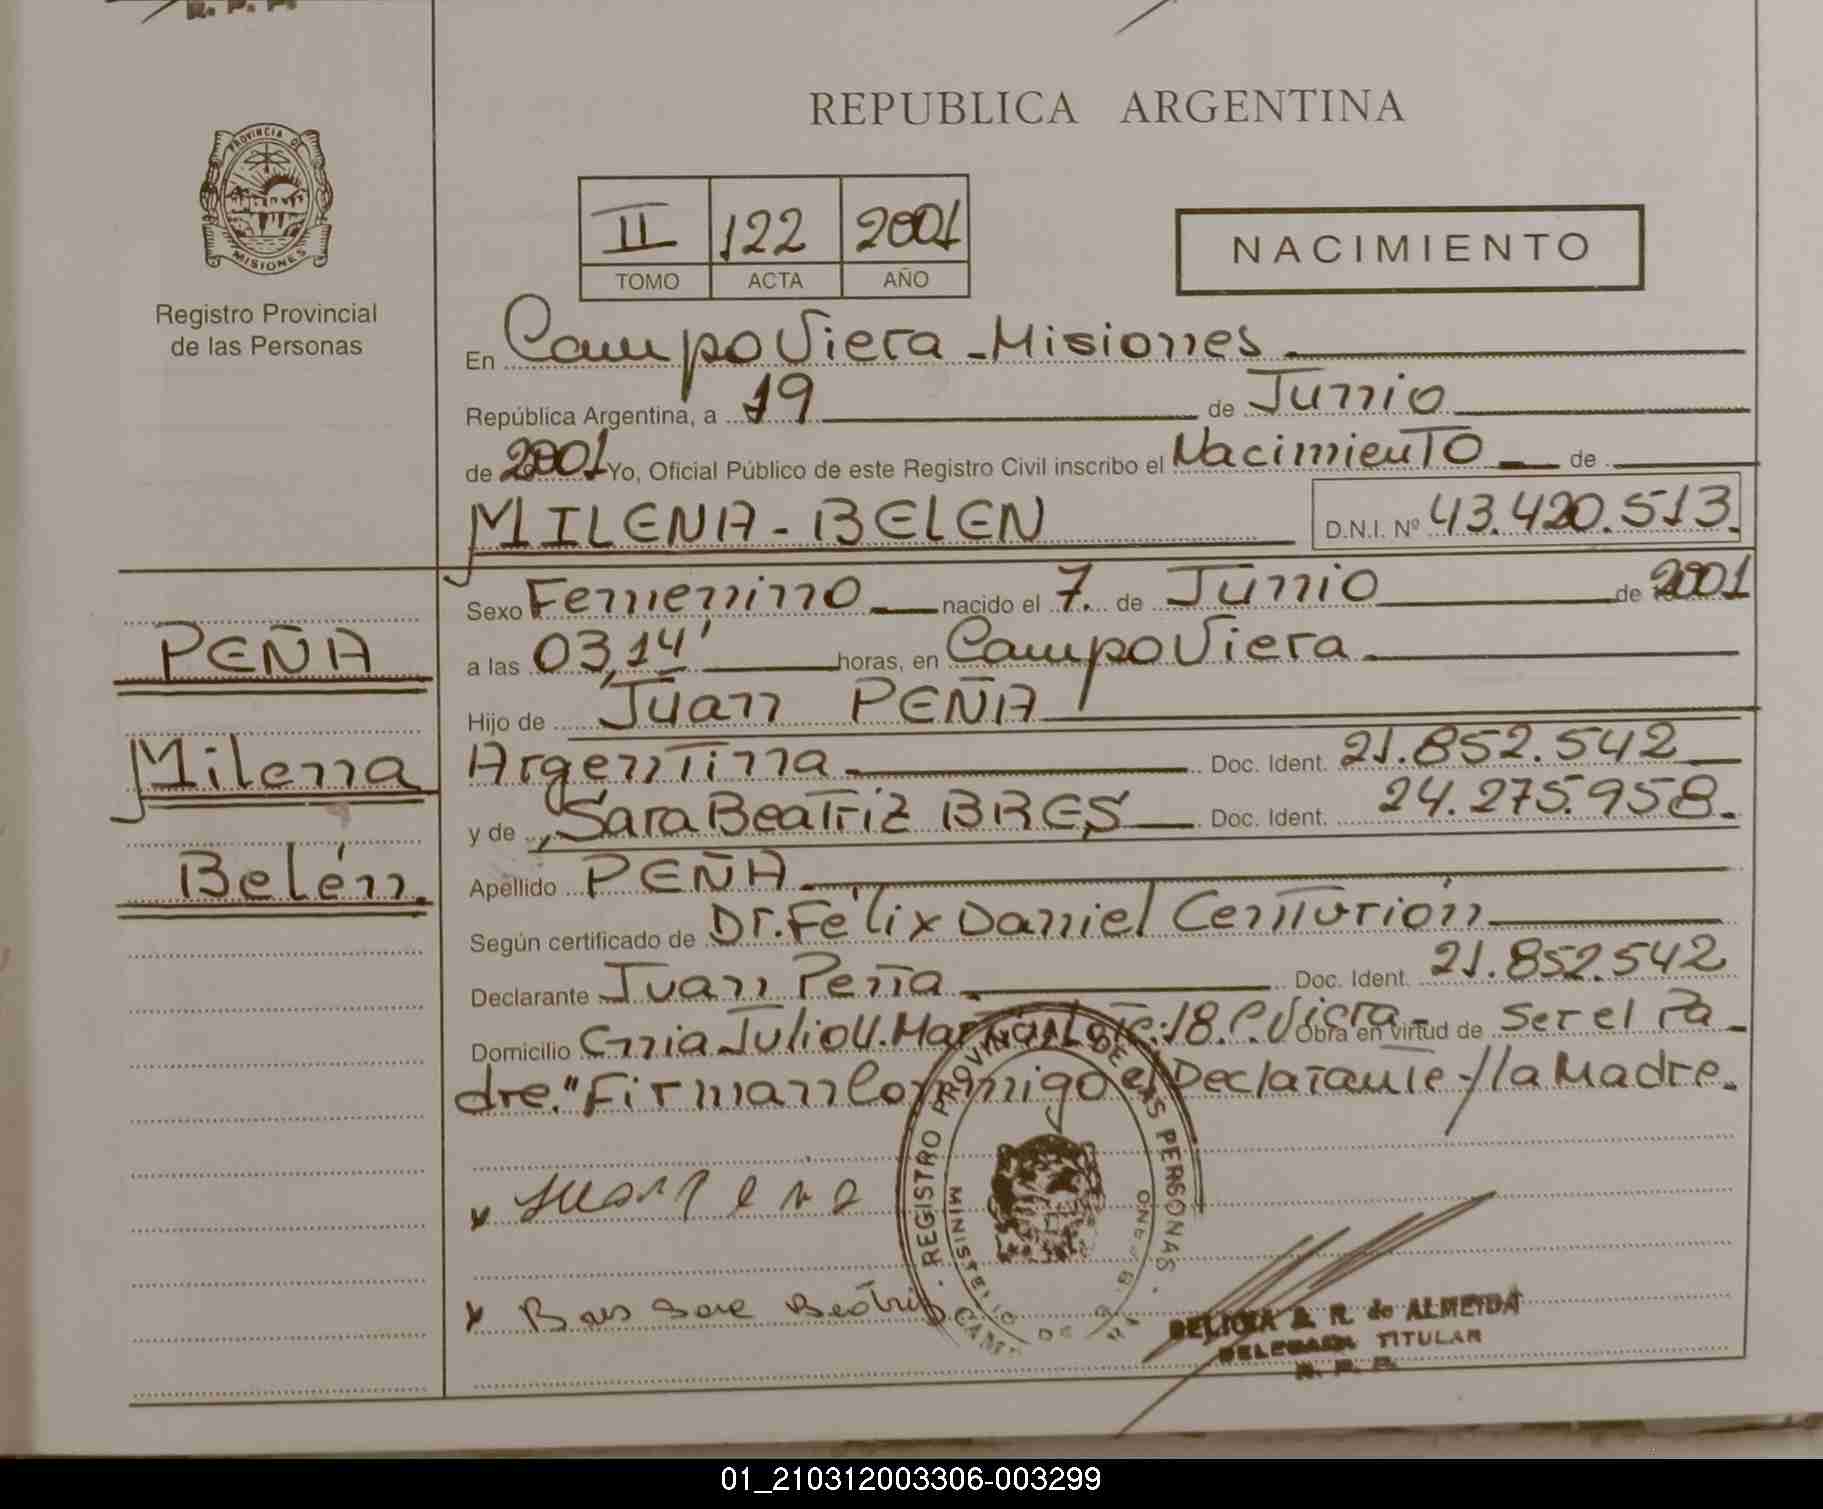 R. P. P.
PROVINCIA DE
MISIONES
Registro Provincial
de las Personas
REPUBLICA ARGENTINA
II 122 2001
TOMO ACTA AÑO
NACIMIENTO
En Campo Viera - Misiones
República Argentina, a 19 de Junio
de 2001 Yo, Oficial Público de este Registro Civil inscribo el Nacimiento de
MILENA - BELEN D.N.I. Nº 43.420.513.
Sexo Femenino nacido el 7. de Junio de 2001
PEÑA
a las 03,14' horas, en Campo Viera
Hijo de Juan PEÑA
Milena
Argentina Doc. Ident. 21.852.542
y de Sara Beatriz BRES Doc. Ident. 24.275.958.
Belén
Apellido PEÑA
Según certificado de Dr. Félix Daniel Centurión
Declarante Juan Peña Doc. Ident. 21.852.542
Domicilio Cnia Julio U. Martin Lote: 18. C. Viera Obra en virtud de ser el Pa-
dre." Firman Conmigo el Declarante y la Madre.
REGISTRO PROVINCIAL DE LAS PERSONAS
MINISTERIO DE
x Juan Pena
x Bres Sara Beatris
DELICIA A. R. de ALMEIDA
DELEGADA TITULAR
R. P. P.
01_210312003306-003299